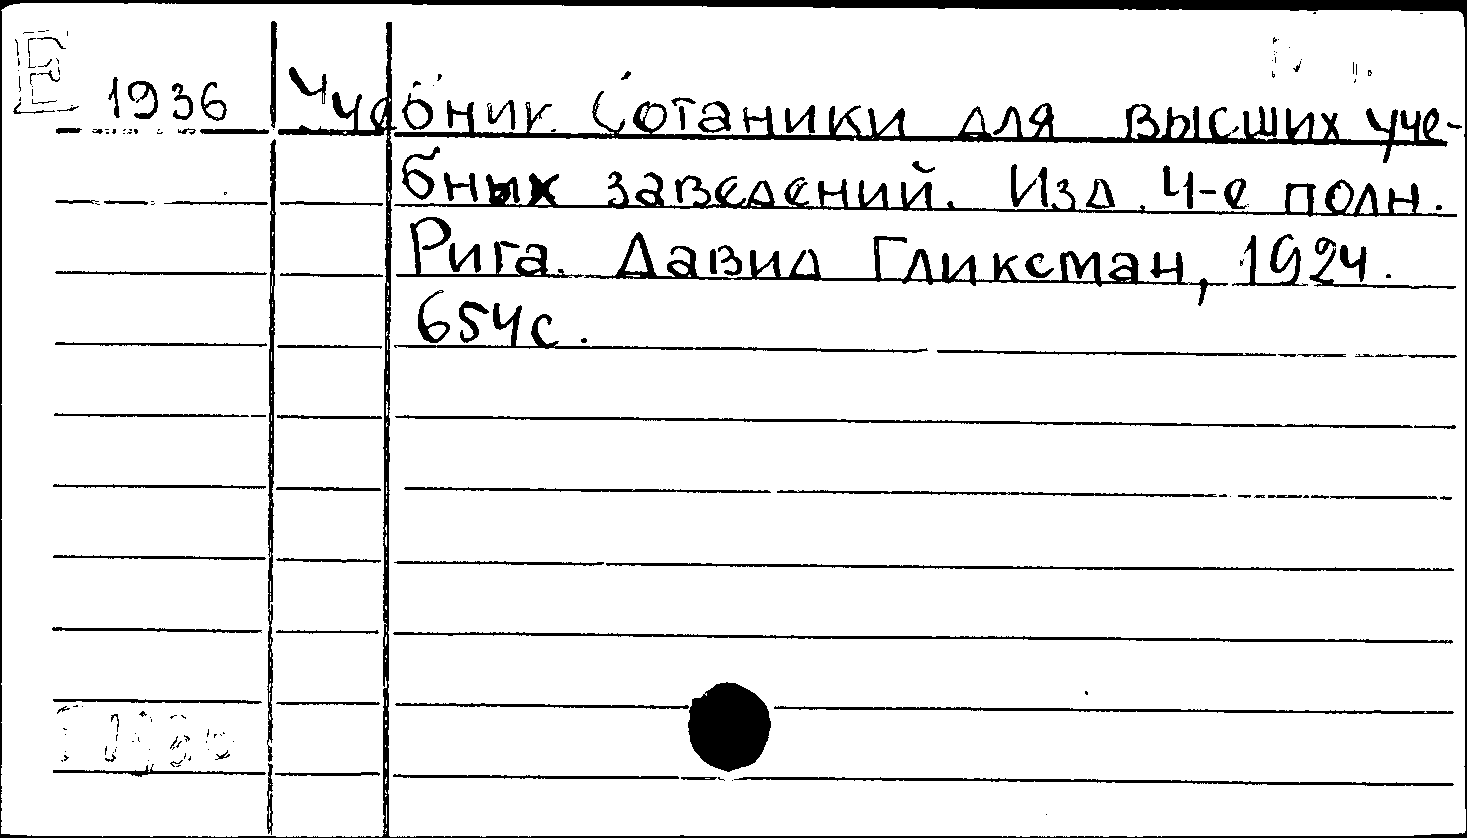 Е 1936 Учебник ботаники для высших уче-
бных заведений. Изд. 4-е полн.
Рига. Давид Гликсман, 1924.
654с.